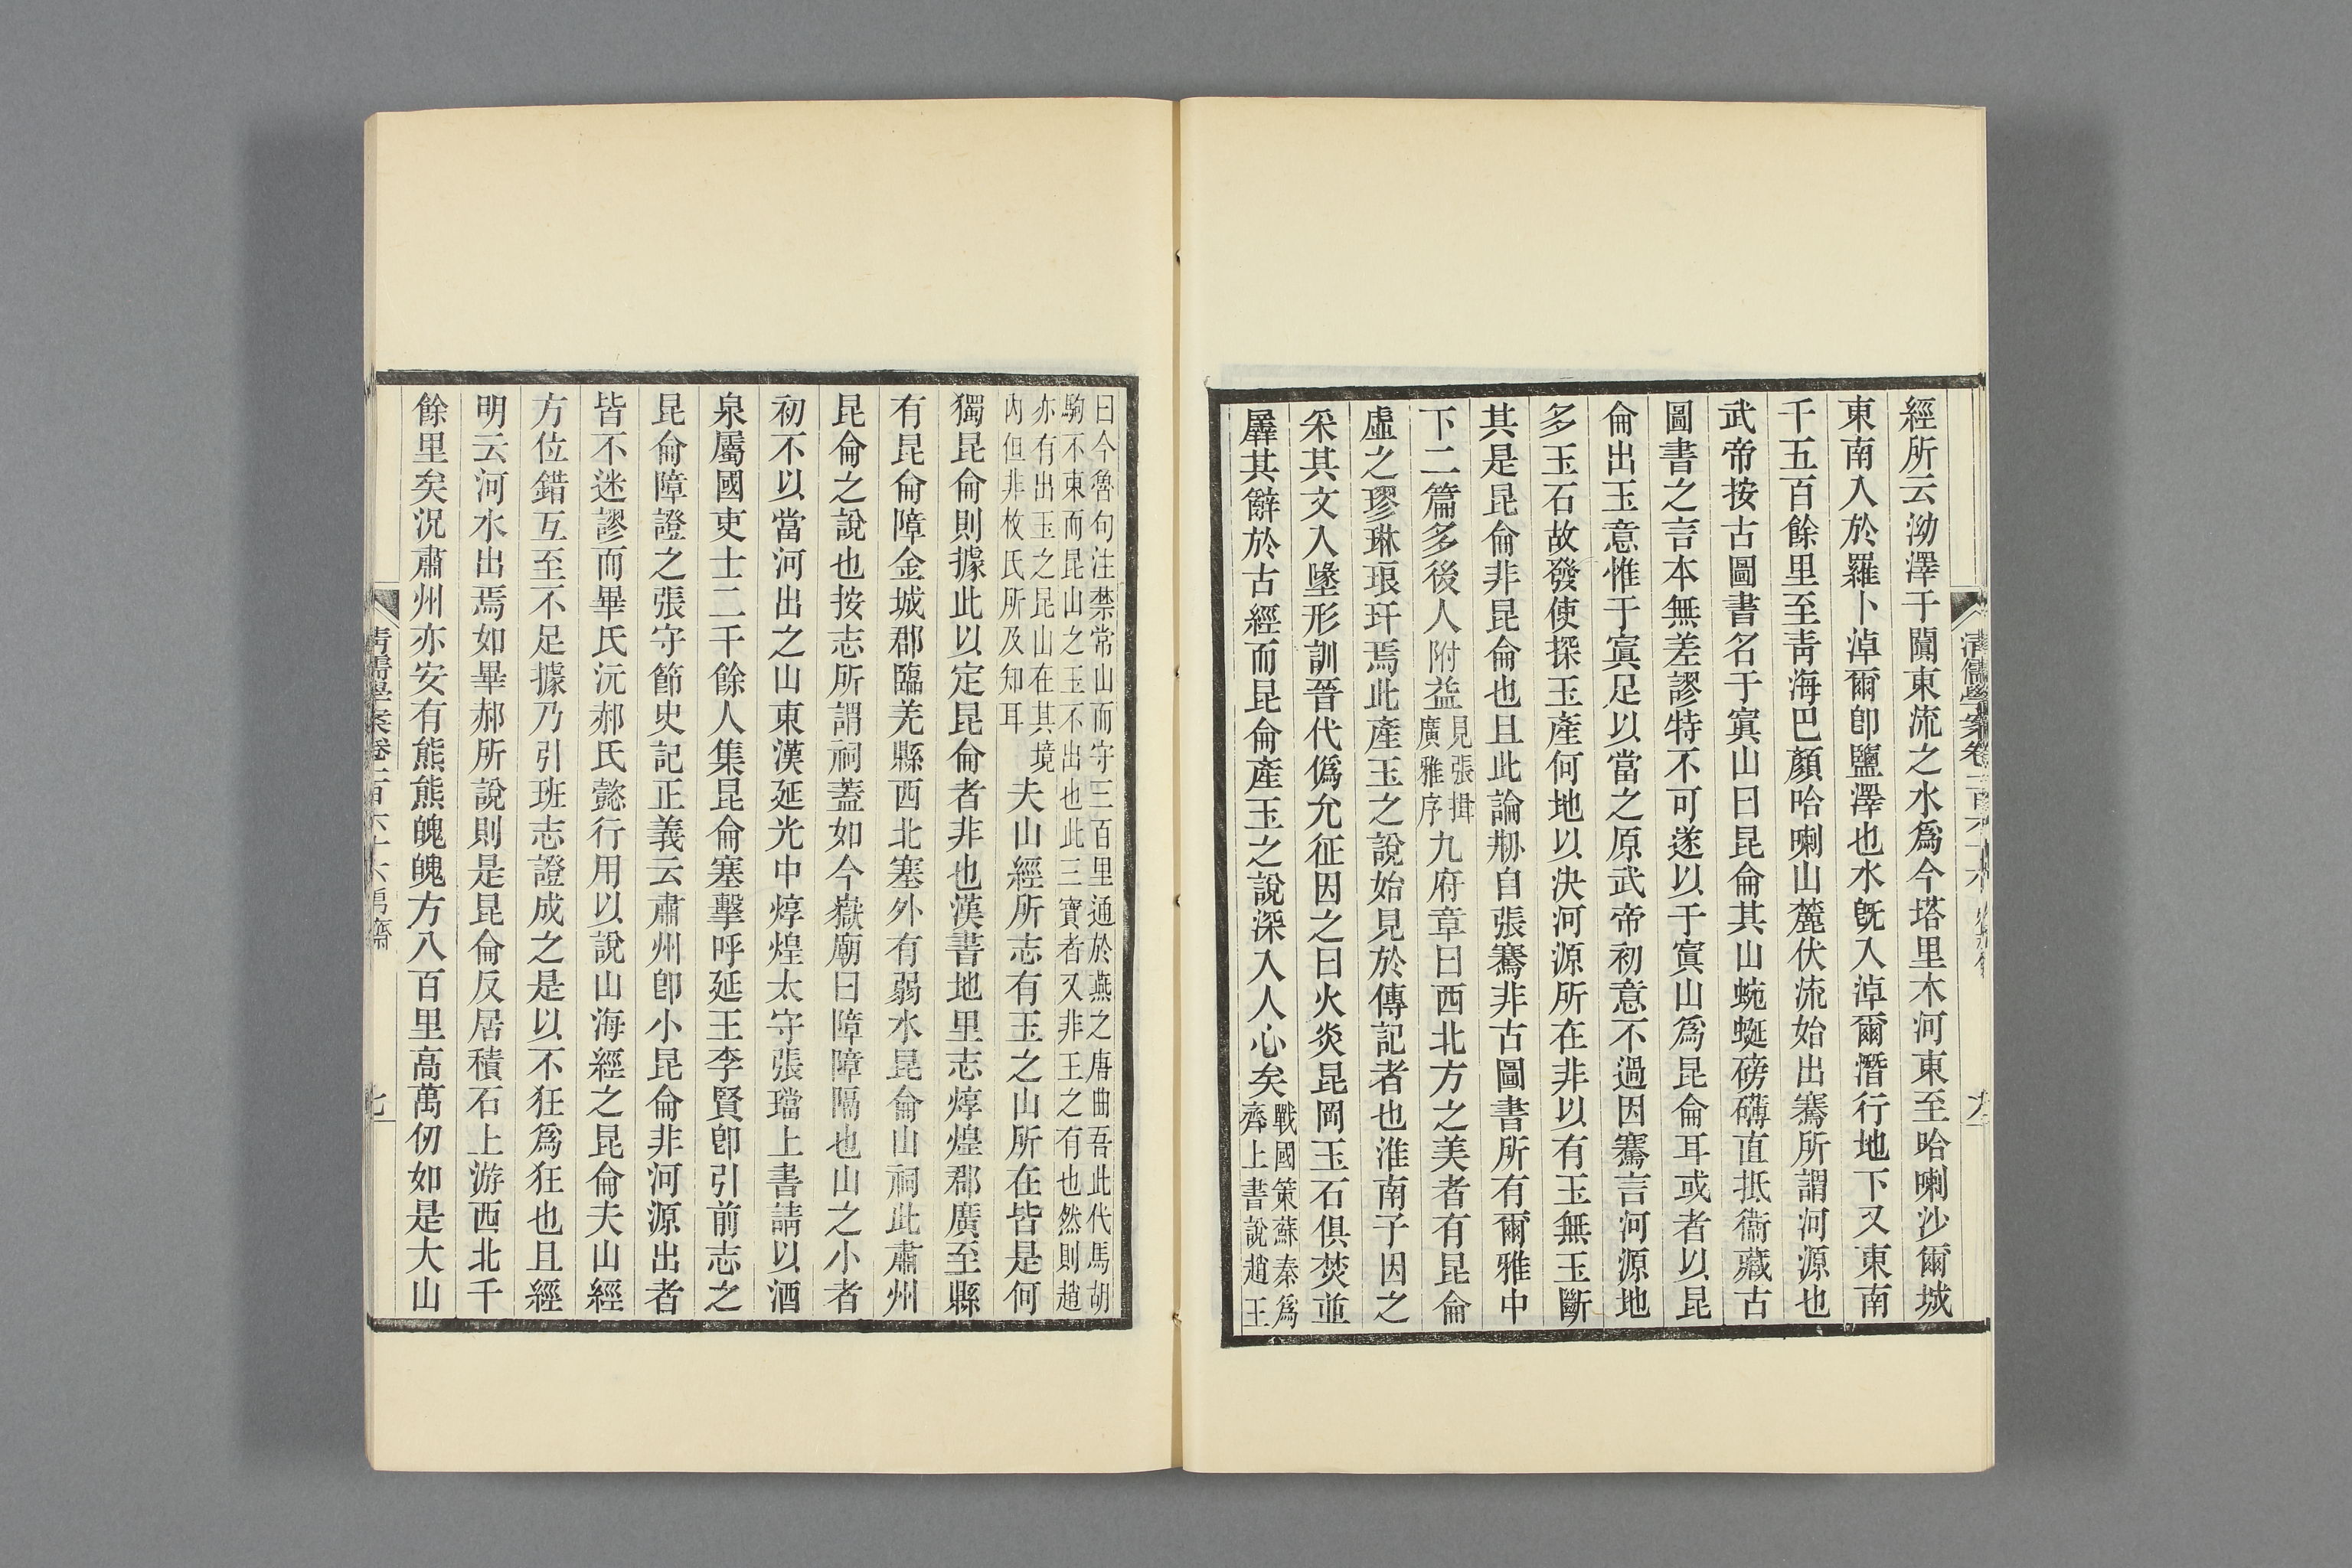 經所云泑澤于闐東流之水爲今塔里木河東至哈喇沙爾城
東南入於羅卜淖爾卽鹽澤也水旣入淖爾潛行地下又東南
千五百餘里至靑海巴顏哈喇山麓伏流始出騫所謂河源也
武帝按古圖書名于寘山曰昆侖其山蜿蜒磅礴直抵衞藏古
圖書之言本無差謬特不可遂以于寘山爲昆侖耳或者以昆
侖出玉意惟于寘足以當之原武帝初意不過因騫言河源地
多玉石故發使探玉產何地以決河源所在非以有玉無玉斷
其是昆侖非昆侖也且此論刱自張騫非古圖書所有爾雅中
下二篇多後人附益見張揖廣雅序九府章曰西北方之美者有昆侖
虛之璆琳琅玕焉此產玉之說始見於傳記者也淮南子因之
采其文入墬形訓晉代僞允征因之曰火炎昆岡玉石俱焚並
羼其辭於古經而昆侖產玉之說深入人心矣戰國策蘇秦爲齊上書說趙王
曰今魯句注禁常山而守三百里通於燕之唐曲吾此代馬胡
駒不東而昆山之玉不出也此三寶者又非王之有也然則趙
亦有出玉之昆山在其境
內但非枚氏所及知耳夫山經所志有玉之山所在皆是何
獨昆侖則據此以定昆侖者非也漢書地里志焞煌郡廣至縣
有昆侖障金城郡臨羌縣西北塞外有弱水昆侖山祠此肅州
昆侖之說也按志所謂祠蓋如今嶽廟曰障障隔也山之小者
初不以當河出之山東漢延光中焞煌太守張璫上書請以酒
泉屬國吏士二千餘人集昆侖塞擊呼延王李賢卽引前志之
昆侖障證之張守節史記正義云肅州卽小昆侖非河源出者
皆不迷謬而畢氏沅郝氏懿行用以說山海經之昆侖夫山經
方位錯互至不足據乃引班志證成之是以不狂爲狂也且經
明云河水出焉如畢郝所說則是昆侖反居積石上游西北千
餘里矣況肅州亦安有熊熊魄魄方八百里高萬仞如是大山